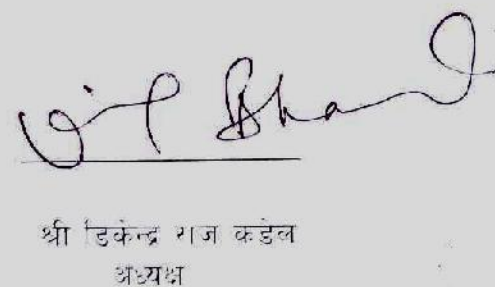 श्री डिकेन्द्र राज कडेल
अध्यक्ष